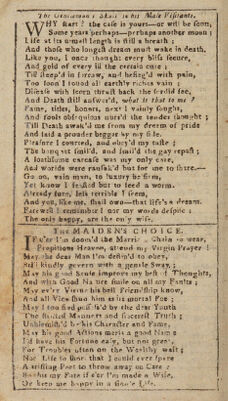 The Gentleman's Skull to his Male Visitants.
WHY start? the case is yours—or will be soon,
Some years perhaps—perhaps another moon;
Life at its utmost length is still a breath;
And those who longest dream must wake in death.
Like you, I once thought every bliss secure,
And gold of every ill the certain cure;
Till steep'd in sorrow, and besieg'd with pain,
Too soon I found all earthly riches vain;
Disease with scorn threw back the sordid fee,
And Death still answer'd, what is that to me?
Fame, titles, honors, next I vainly sought,
And fools obsequious nurs'd the tender thought;
Till Death awak'd me from my dream of pride
And laid a prouder beggar by my side.
Pleasure I courted, and obey'd my taste;
The banquet smil'd, and smil'd the gay repast;
A loathsome carcase was my only care,
And worlds were ransack'd but for me to share.—
Go on, vain man, to luxury be firm,
Yet know I feasted but to feed a worm.
Already sure, less terrible I seem,
And you, like me, shall own—that life's a dream.
Farewel! remember! nor my words despise:
The only happy, are the only wise.
The MAIDEN's CHOICE.
IF e'er I'm doom'd the Marriage Chain to wear,
Propitious Heaven, attend my Virgin Prayer!
May the dear Man I'm destin'd to obey,
Still kindly govern with a gentle Sway;
May his good Sense improve my best of Thoughts,
And with Good Nature smile on all my Faults;
May ev'ry Virtue his best Friendship know,
And all Vice shun him as its mortal Foe;
May I too find possess'd by the dear Youth
The strictest Manners and sincerest Truth;
Unblemish'd be his Character and Fame,
May his good Actions merit a good Name
I'd have his Fortune easy, but not great,
For Troubles often on the Wealthy wait;
Nor Life to short that I could ever spare
A trifling Peer to throw away on Care:
Be this my Fate if e'er I'm made a Wife,
Or keep me happy in a single Life.